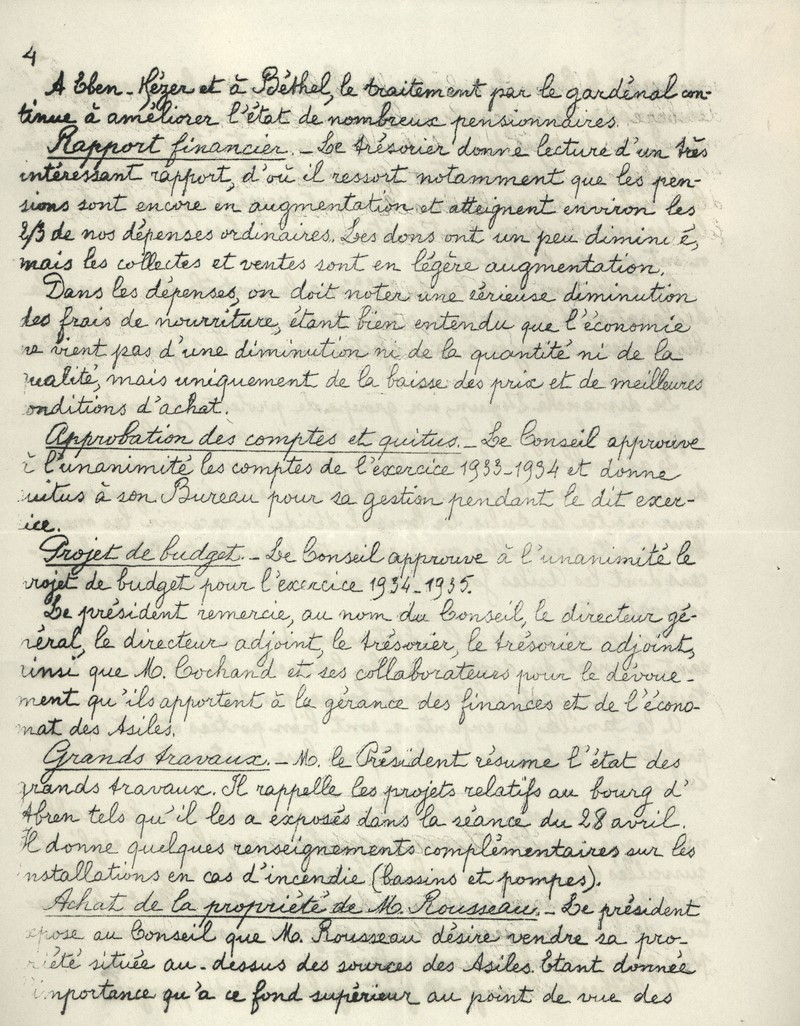 4
A Eben-Hézer et à Béthel, le traitement par le gardénal con-
tinue à améliorer l'état de nombreux pensionnaires.
Rapport financier. - Le trésorier donne lecture d'un très
intéressant rapport, d'où il ressort notamment que les pen-
sions sont encore en augmentation et atteignent environ les
2/3 de nos dépenses ordinaires. Les dons ont un peu diminué,
mais les collectes et ventes sont en légère augmentation.
Dans les dépenses, on doit noter une sérieuse diminution
des frais de nourriture, étant bien entendu que l'économie
ne vient pas d'une diminution ni de la quantité ni de la
ualité, mais uniquement de la baisse des prix et de meilleures
onditions d'achat.
Approbation des comptes et quitus. - Le Conseil approuve
à l'unanimité les comptes de l'exercice 1933-1934 et donne
uitus à son Bureau pour sa gestion pendant le dit exer-
ice.
Projet de budget. - Le Conseil approuve à l'unanimité le
rojet de budget pour l'exercice 1934-1935.
Le président remercie, au nom du Conseil, le directeur gé-
néral, le directeur adjoint, le trésorier, le trésorier adjoint,
ainsi que M. Cochand et ses collaborateurs pour le dévoue-
ment qu'ils apportent à la gérance des finances et de l'écono-
mat des Asiles.
Grands travaux. - M. le Président résume l'état des
grands travaux. Il rappelle les projets relatifs au bourg d'
Abren tels qu'il les a exposés dans la séance du 28 avril.
Il donne quelques renseignements complémentaires sur les
nstallations en cas d'incendie (bassins et pompes).
Achat de la propriété de M. Rousseau. - Le président
epose au Conseil que M. Rousseau désire vendre sa pro-
riété située au-dessus des sources des Asiles. Etant donnée
importance qu'a ce fond supérieur au point de vue des